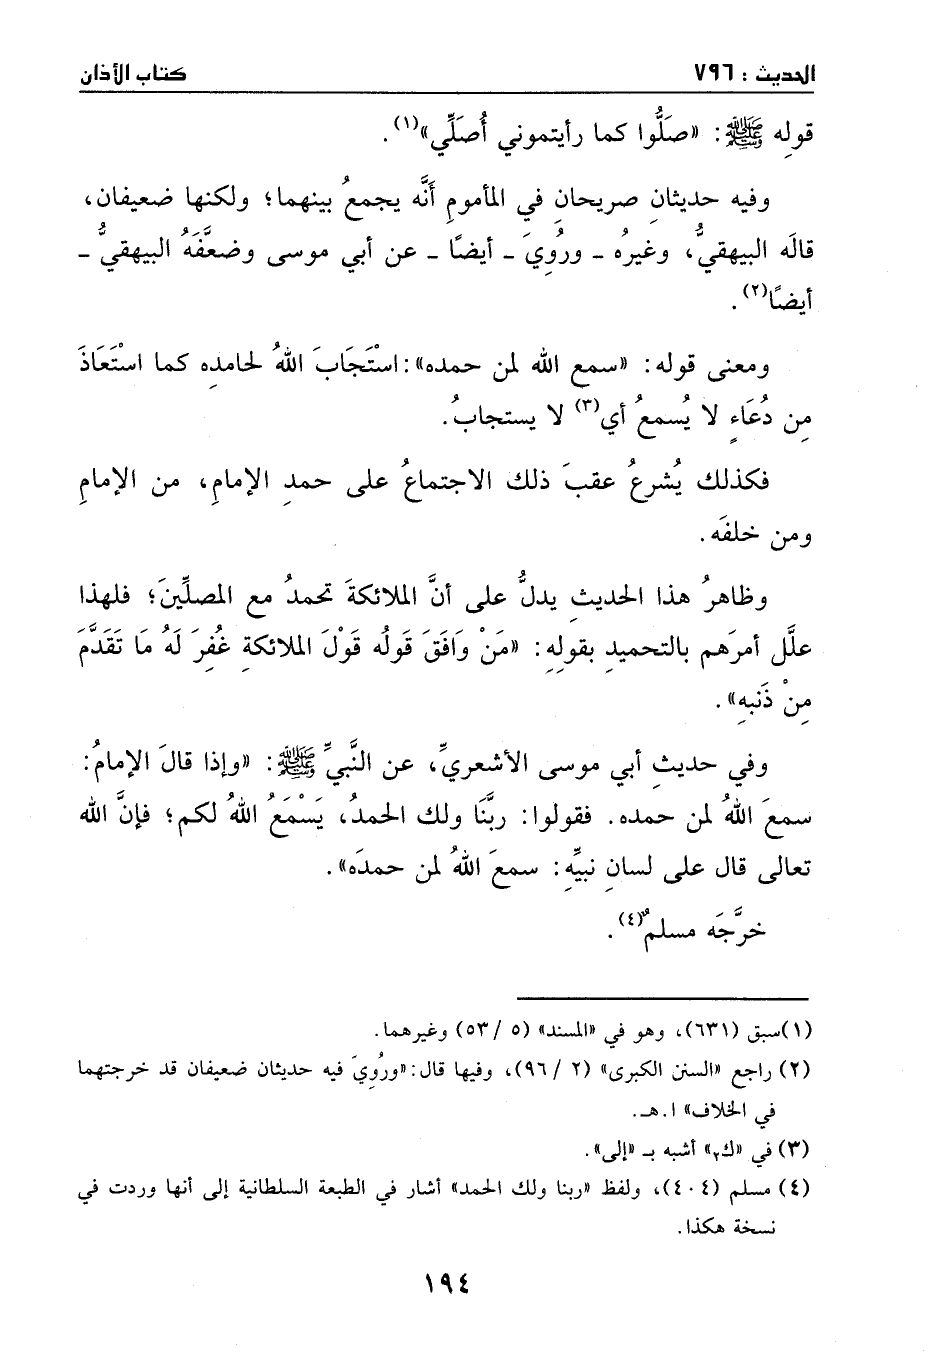 الحديث : ٧٩٦
كتاب الأذان
قولِه ﷺ: «صَلُّوا كما رأيتموني أُصَلِّي»(١).
وفيه حديثانِ صريحانِ في المأمومِ أنَّه يجمعُ بينهما؛ ولكنها ضعيفان،
قالَه البيهقيُّ، وغيرهُ ـ ورُوِيَ ـ أيضًا ـ عن أبي موسى وضعَّفَهُ البيهقيُّ ـ
أيضًا(٢).
ومعنى قوله: «سمع الله لمن حمده»: اسْتَجَابَ اللهُ لحامدِه كما اسْتَعَاذَ
مِن دُعَاءٍ لا يُسمعُ أي(٣) لا يستجابُ.
فكذلك يُشرعُ عقبَ ذلك الاجتماعُ على حمدِ الإمامِ، من الإمامِ
ومن خلفَه.
وظاهرُ هذا الحديثِ يدلُّ على أنَّ الملائكةَ تحمدُ مع المصلِّينَ؛ فلهذا
علَّل أمرَهم بالتحميدِ بقولِهِ: «مَنْ وَافَقَ قَولُه قَوْلَ الملائكةِ غُفِرَ لَهُ مَا تَقَدَّمَ
مِنْ ذَنبِهِ».
وفي حديثِ أبي موسى الأشعريِّ، عن النَّبيِّ ﷺ: «وإذا قالَ الإمامُ:
سمعَ اللهُ لمن حمده. فقولوا: ربَّنَا ولك الحمدُ، يَسْمَعُ اللهُ لكم؛ فإنَّ الله
تعالى قال على لسانِ نبيِّهِ: سمعَ اللهُ لمن حمدَه».
خرَّجَه مسلمٌ(٤).
(١) سبق (٦٣١)، وهو في «المسند» (٥ / ٥٣) وغيرهما.
(٢) راجع «السنن الكبرى» (٢ / ٩٦)، وفيها قال: «ورُوِيَ فيه حديثان ضعيفان قد خرجتهما
في الخلاف» ا.هـ.
(٣) في «ك٢» أشبه بـ «إلى».
(٤) مسلم (٤٠٤)، ولفظ «ربنا ولك الحمد» أشار في الطبعة السلطانية إلى أنها وردت في
نسخة هكذا.
١٩٤